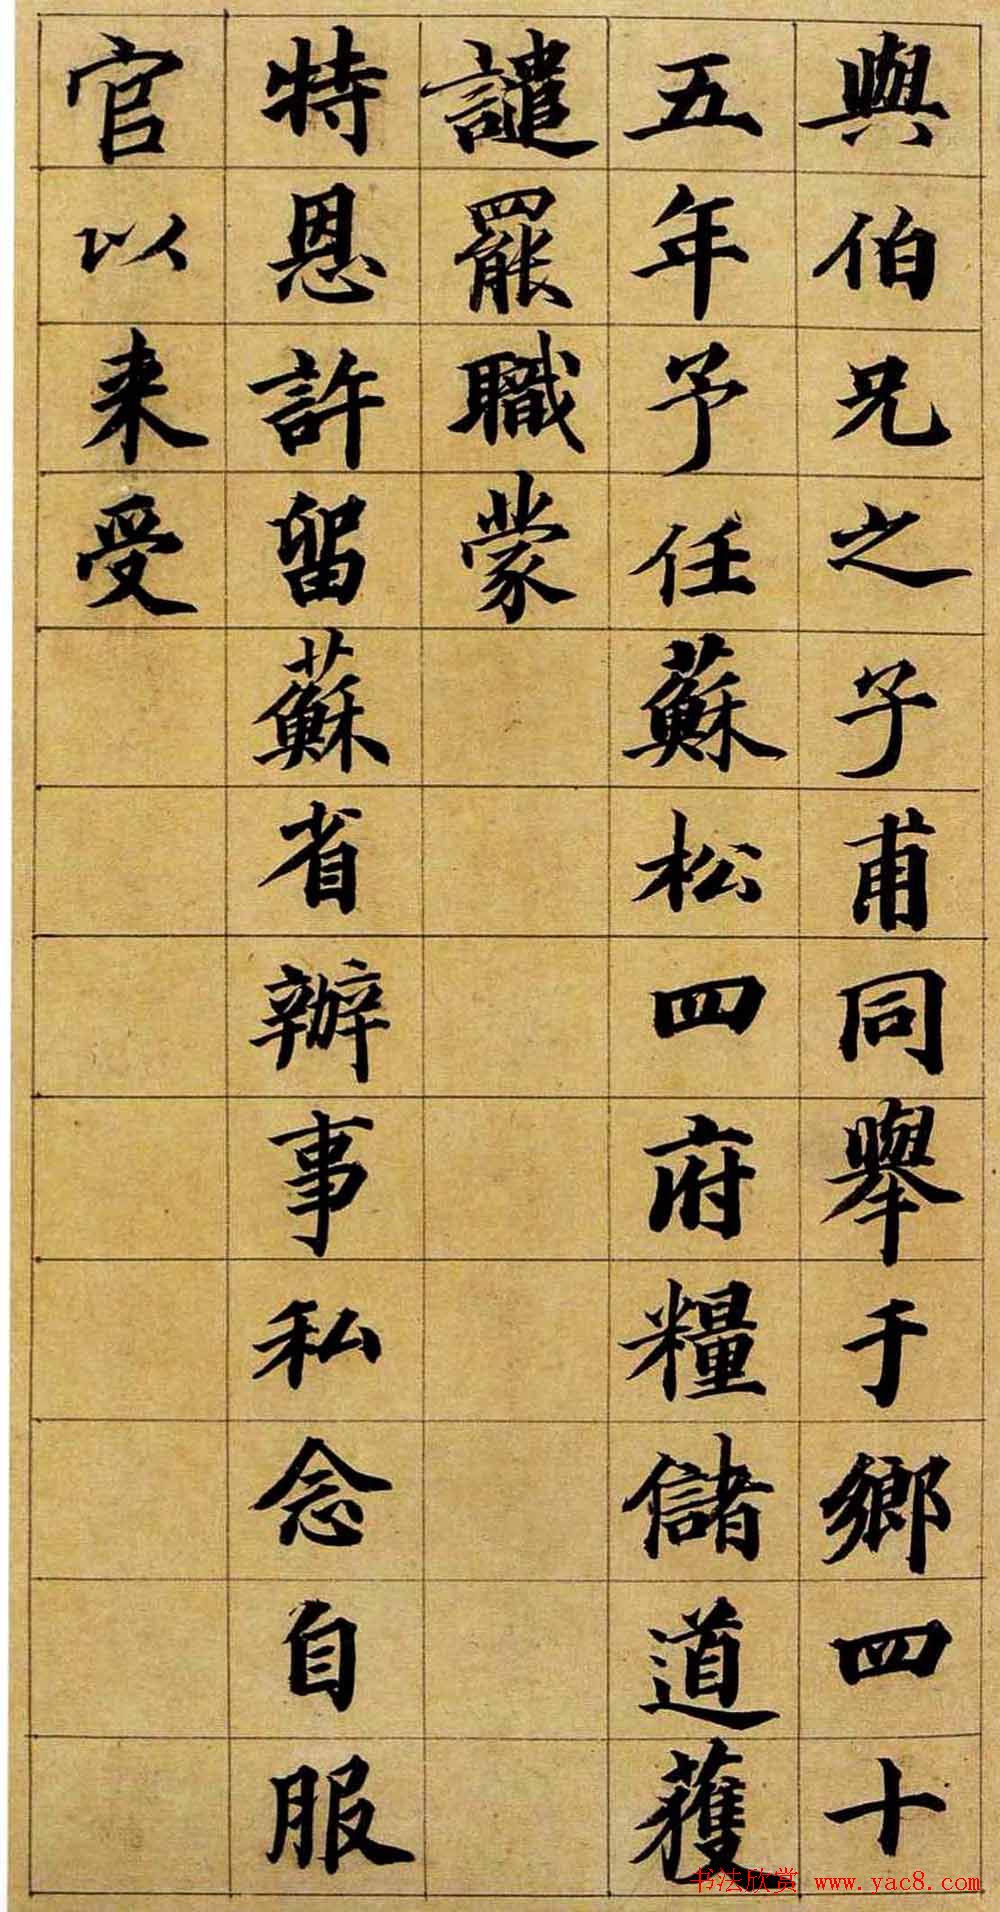 與伯兄之子甫同舉于鄉四十
五年予任蘇松四府糧儲道獲
譴罷職蒙
特恩許留蘇省辦事私念自服
官以来受
书法欣赏 www.yac8.com